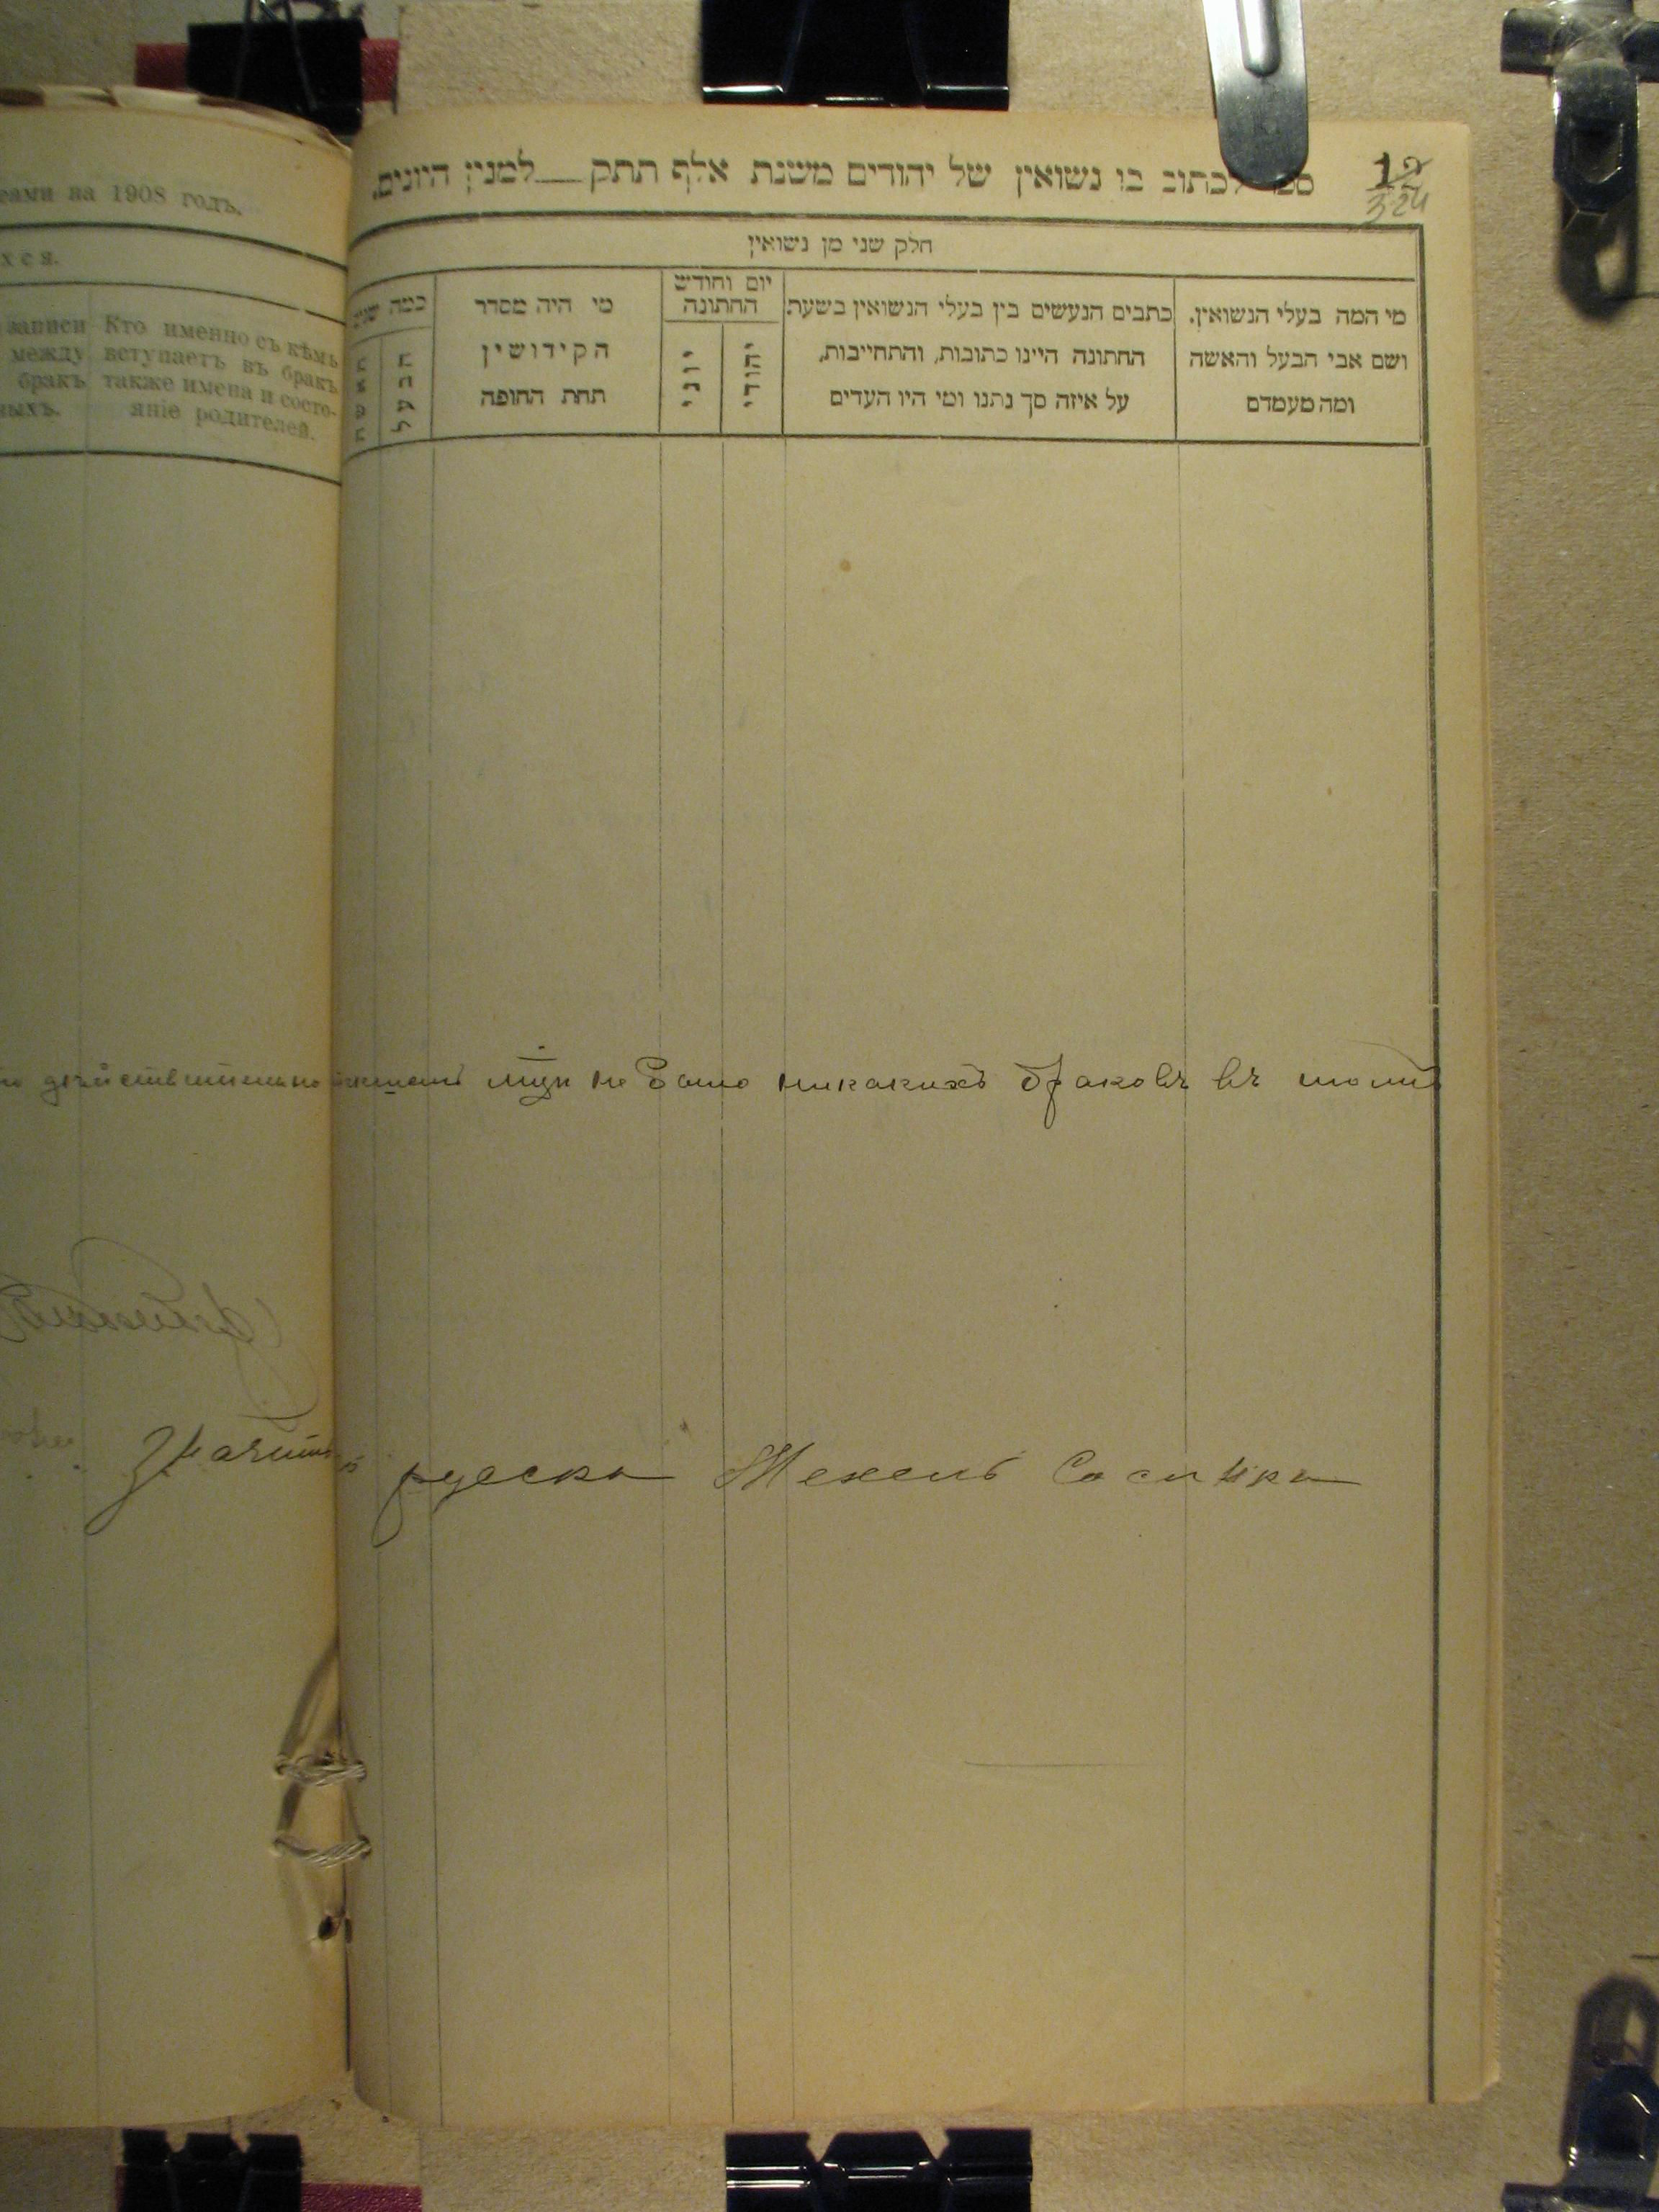 еами на 1908 годъ.
хся.
записи
между
бракъ
ныхъ.
Кто именно съ кѣмъ
вступаетъ въ бракъ
также имена и состо-
яніе родителей.
לכתוב בו נשואין של יהודים משנת אלף תתק__למנין היונים.
12
324
חלק שני מן נשואין
מי המה בעלי הנשואין.
ושם אבי הבעל והאשה
ומה מעמדם
כתבים הנעשים בין בעלי הנשואין בשעת
החתונה היינו כתובות, והתחייבות,
על איזה סך נתנו ומי היו העדים
יום וחודש
החתונה
יהודי
יוני
מי היה מסדר
הקידושין
תחת החופה
כמה שנים
הבעל
האשה
дѣйствительно не было никакихъ браковъ въ томъ